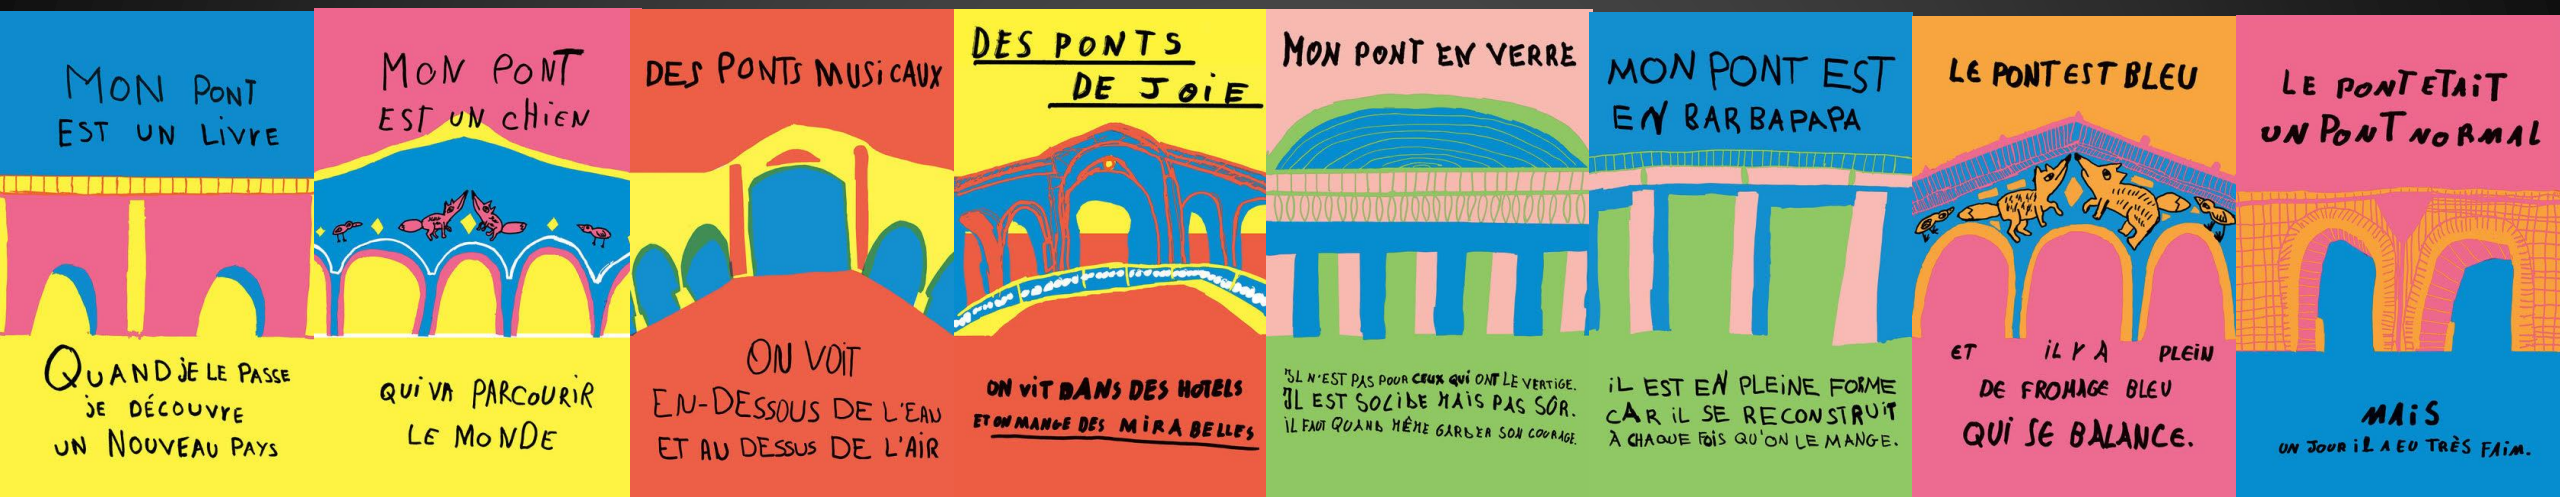 MON PONT
EST UN LIVRE
QUAND JE LE PASSE
JE DÉCOUVRE
UN NOUVEAU PAYS
MON PONT
EST UN CHIEN
QUI VA PARCOURIR
LE MONDE
DES PONTS MUSICAUX
ON VOIT
EN-DESSOUS DE L'EAU
ET AU DESSUS DE L'AIR
DES PONTS
DE JOIE
ON VIT DANS DES HOTELS
ET ON MANGE DES MIRABELLES
MON PONT EN VERRE
IL N'EST PAS POUR CEUX QUI ONT LE VERTIGE.
IL EST SOLIDE MAIS PAS SÛR.
IL FAUT QUAND MÊME GARDER SON COURAGE.
MON PONT EST
EN BARBAPAPA
IL EST EN PLEINE FORME
CAR IL SE RECONSTRUIT
À CHAQUE FOIS QU'ON LE MANGE.
LE PONT EST BLEU
ET IL Y A PLEIN
DE FROMAGE BLEU
QUI SE BALANCE.
LE PONT ETAIT
UN PONT NORMAL
MAIS
UN JOUR IL A EU TRÈS FAIM.